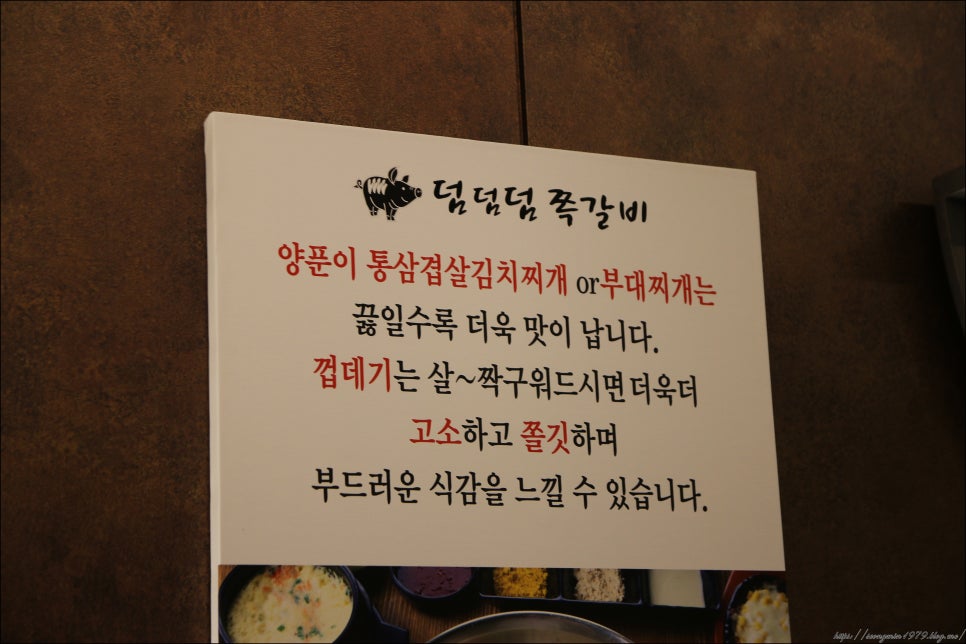 덤덤덤 쪽갈비
양푼이 통삼겹살김치찌개 or부대찌개는
끓일수록 더욱 맛이 납니다.
껍데기는 살~짝구워드시면더욱더
고소하고 쫄깃하며
부드러운 식감을 느낄 수 있습니다.